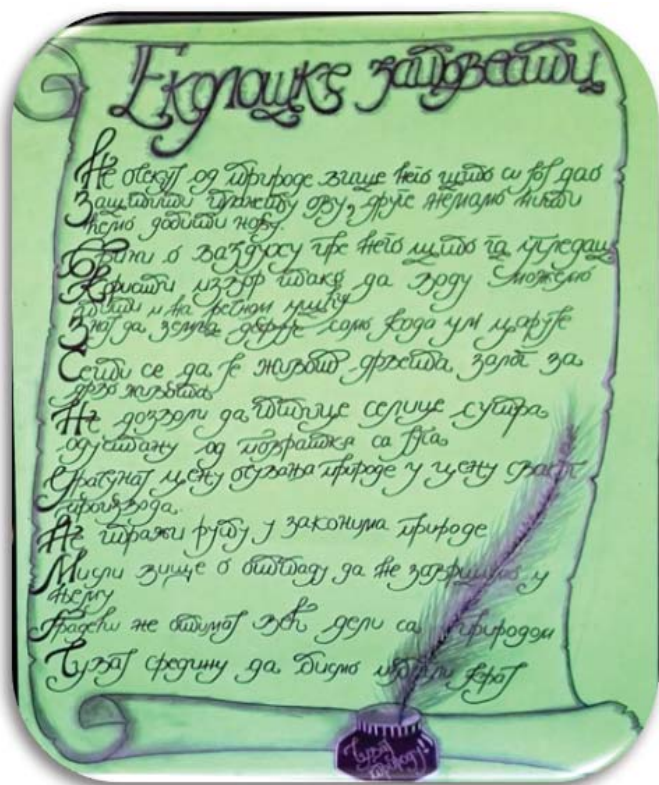 Еколошке заповести
Не очекуј од природе више него што си јој дао
Заштити планету ову, друге немамо нити
ћемо добити нову.
Брини о ваздуху пре него што га угледаш
Користи извор тако да воду можемо
пити и на речном ушћу
Знај да земља дарује само када ум царује
Сети се да је живот дрвета, залог за
дрво живота
Не дозволи да птице селице сутра
одустану од повратка са југа
Урачунај цену очувања природе у цену сваког
производа.
Не тражи рупу у законима природе
Мисли више о отпаду да не завршимо у
њему
Градећи не отимај већ дели са природом
Чувај средину да бисмо имали крај
Чувај
природу!!